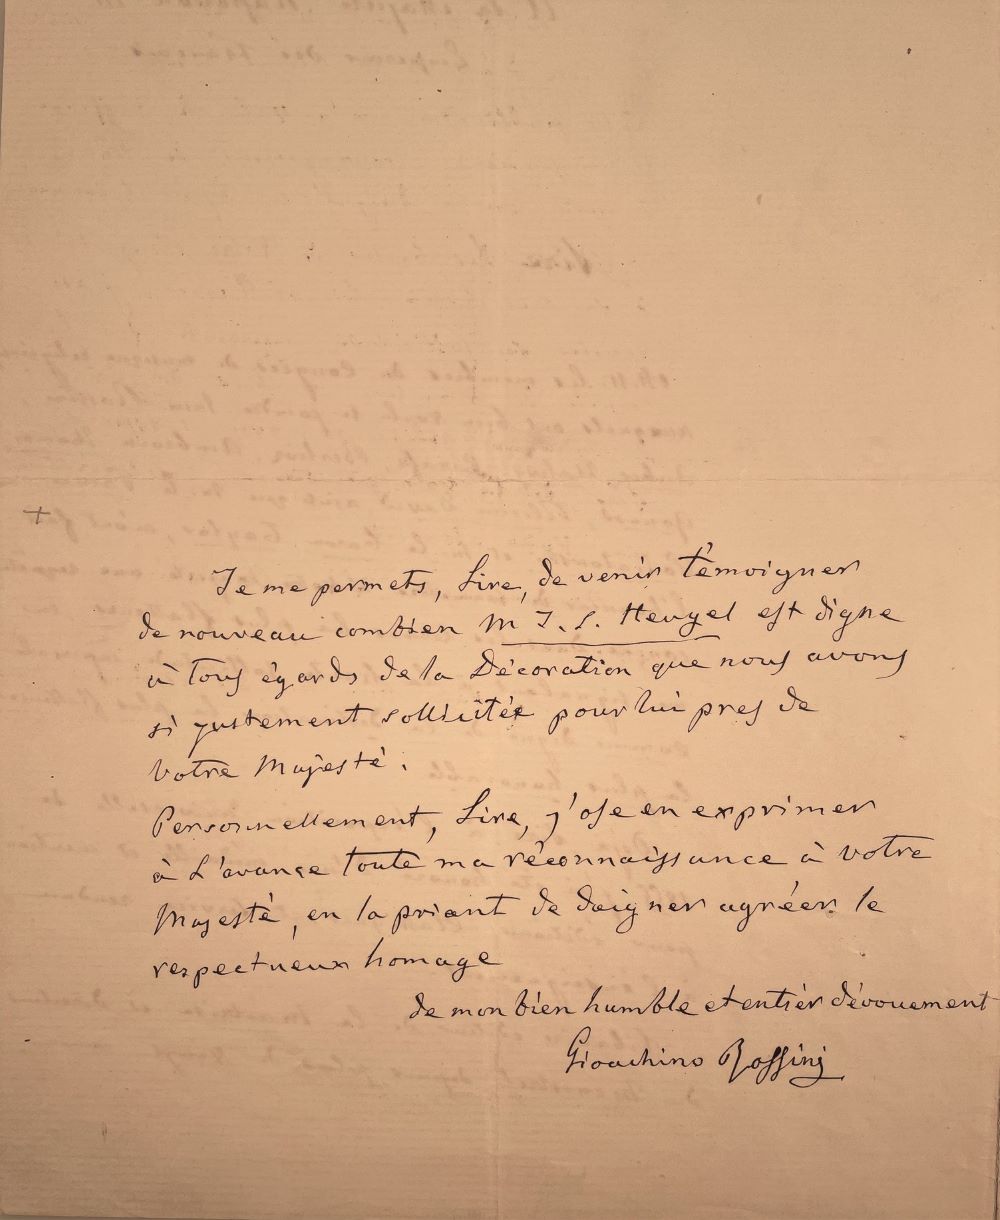 Je me permets, Sire, de venir témoigner
de nouveau combien M J. L. Heugel est digne
à tous égards de la Décoration que nous avons
si justement sollicitée pour lui pres de
Votre Majesté.
Personnellement, Sire, j'ose en exprimer
à L'avance toute ma réconnaissance à votre
Majesté, en la priant de daigner agréer le
respectueux homage
de mon bien humble et entiér dévouement
Gioachino Rossini